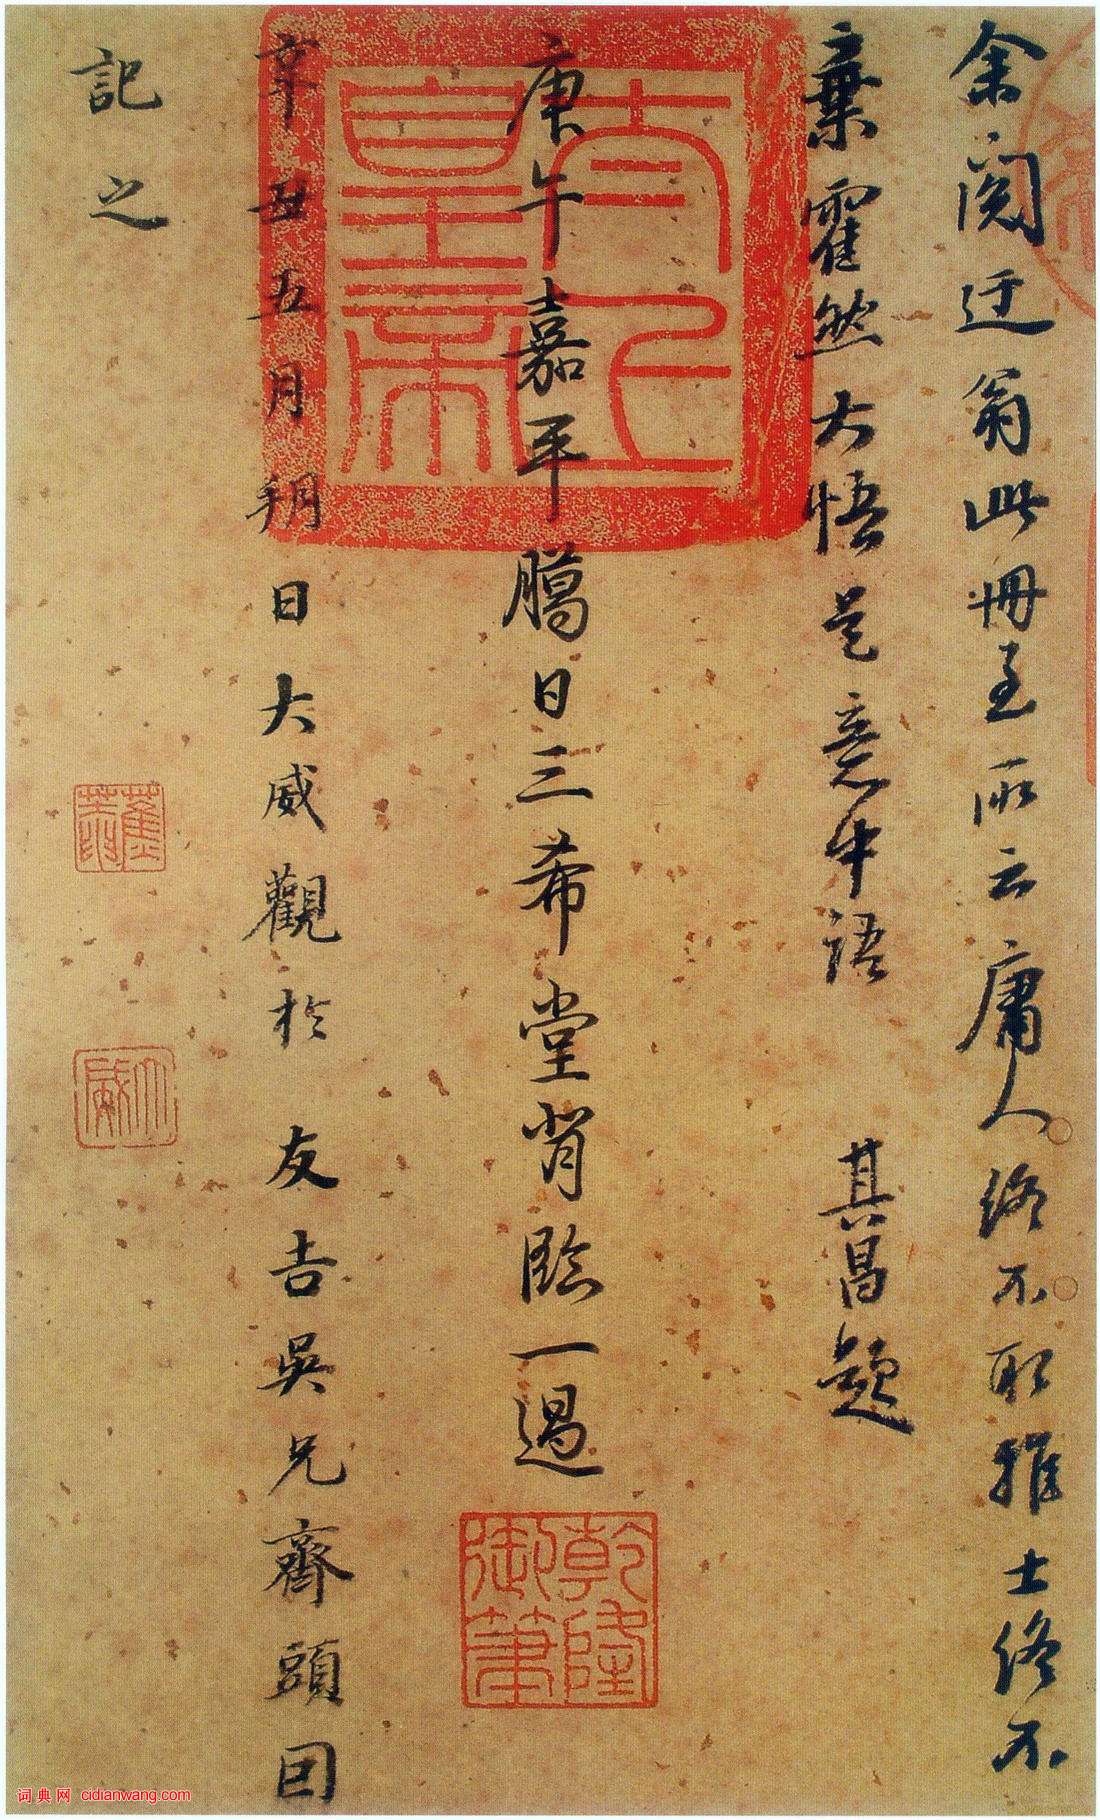 余閱迂翁此冊至所云庸人終不取雅士終不
棄霍然大悟是意中語 其昌題
庚午嘉平臈日三希堂背臨一過
辛丑五月朔日大威觀於 友吉吳兄齋頭因
記之
太上皇帝
乾隆御筆
大威
词典网 cidianwang.com